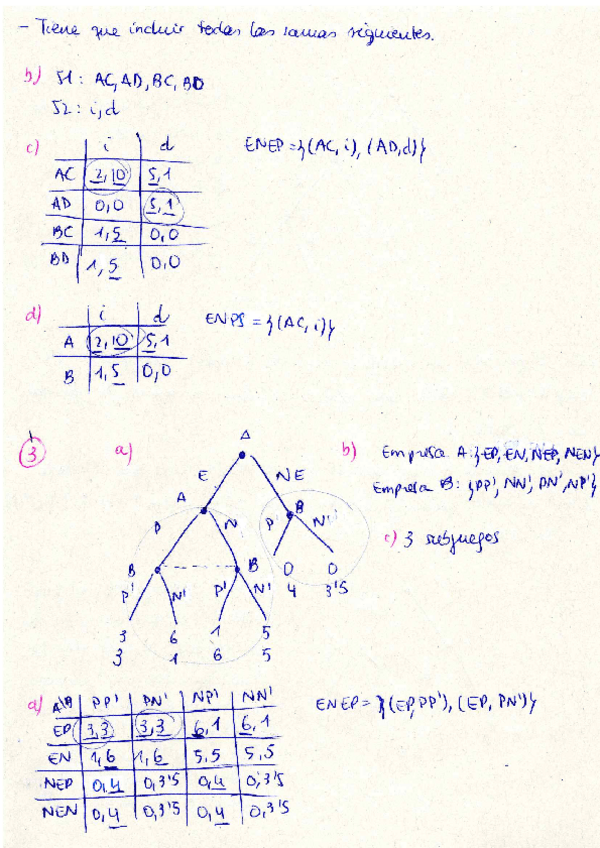 - Tiene que incluir todas las ramas siguientes.
b) S1: AC, AD, BC, BD
S2: i, d
c) i d
AC 2,10 5,1
AD 0,0 5,1
BC 1,5 0,0
BD 1,5 0,0
ENEP = {(AC, i), (AD, d)}
d) i d
A 2,10 5,1
B 1,5 0,0
ENPS = {(AC, i)}
3 a)
A
E NE
A B
P N P' N'
B B 0 0
4 3'5
P' N' P' N'
3 6 1 5
3 1 6 5
b) Empresa A: {EP, EN, NEP, NEN}
Empresa B: {PP', NN', PN', NP'}
c) 3 subjuegos
d) A\B PP' PN' NP' NN'
EP 3,3 3,3 6,1 6,1
EN 1,6 1,6 5,5 5,5
NEP 0,4 0,3'5 0,4 0,3'5
NEN 0,4 0,3'5 0,4 0,3'5
ENEP = {(EP, PP'), (EP, PN')}